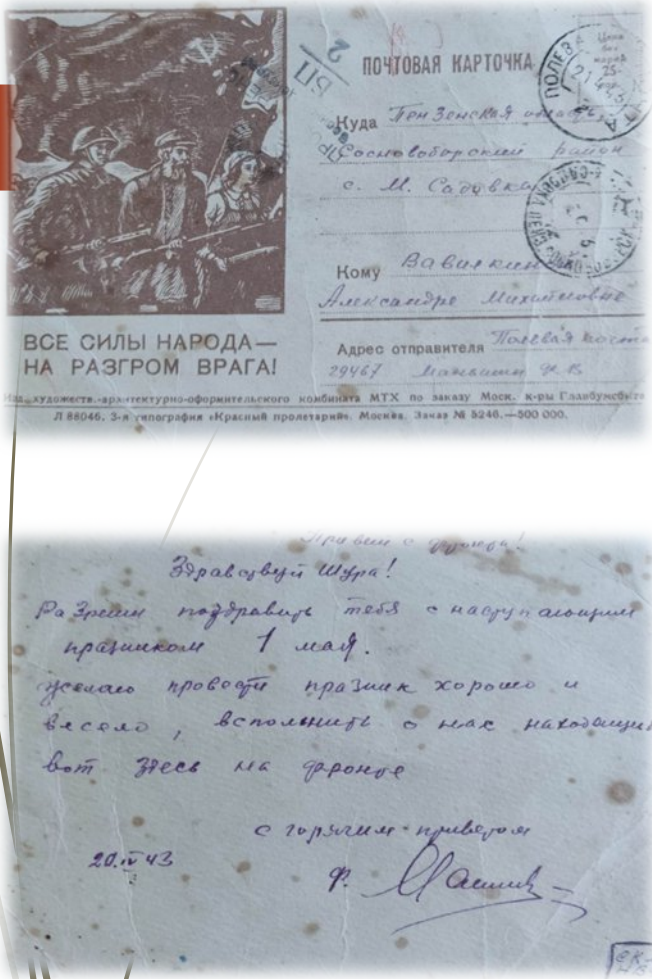 ПОЧТОВАЯ КАРТОЧКА
Цена
без
марки
25
2
БП
ПОЛЕВАЯ
21 4 43
Куда Пензенская область
Сосновоборский район
с. М. Садовка
Кому Вавилкин
Александре Михайловне
Адрес отправителя Полевая почта
29467 Ф. В
ВСЕ СИЛЫ НАРОДА —
НА РАЗГРОМ ВРАГА!
Изд. художеств.-архитектурно-оформительского комбината МТХ по заказу Моск. к-ры Главбумсбыта
Л 88046. 3-я типография «Красный пролетарий». Москва. Заказ № 5246.—500 000.
Привет с фронта!
Здравствуй Шура!
Разреши поздравить тебя с наступающим
празником 1 мая.
желаю провести празник хорошо и
весело, вспомнить о нас находящих
вот здесь на фронте
с горячим-приветом
20.IV 43
Ф.